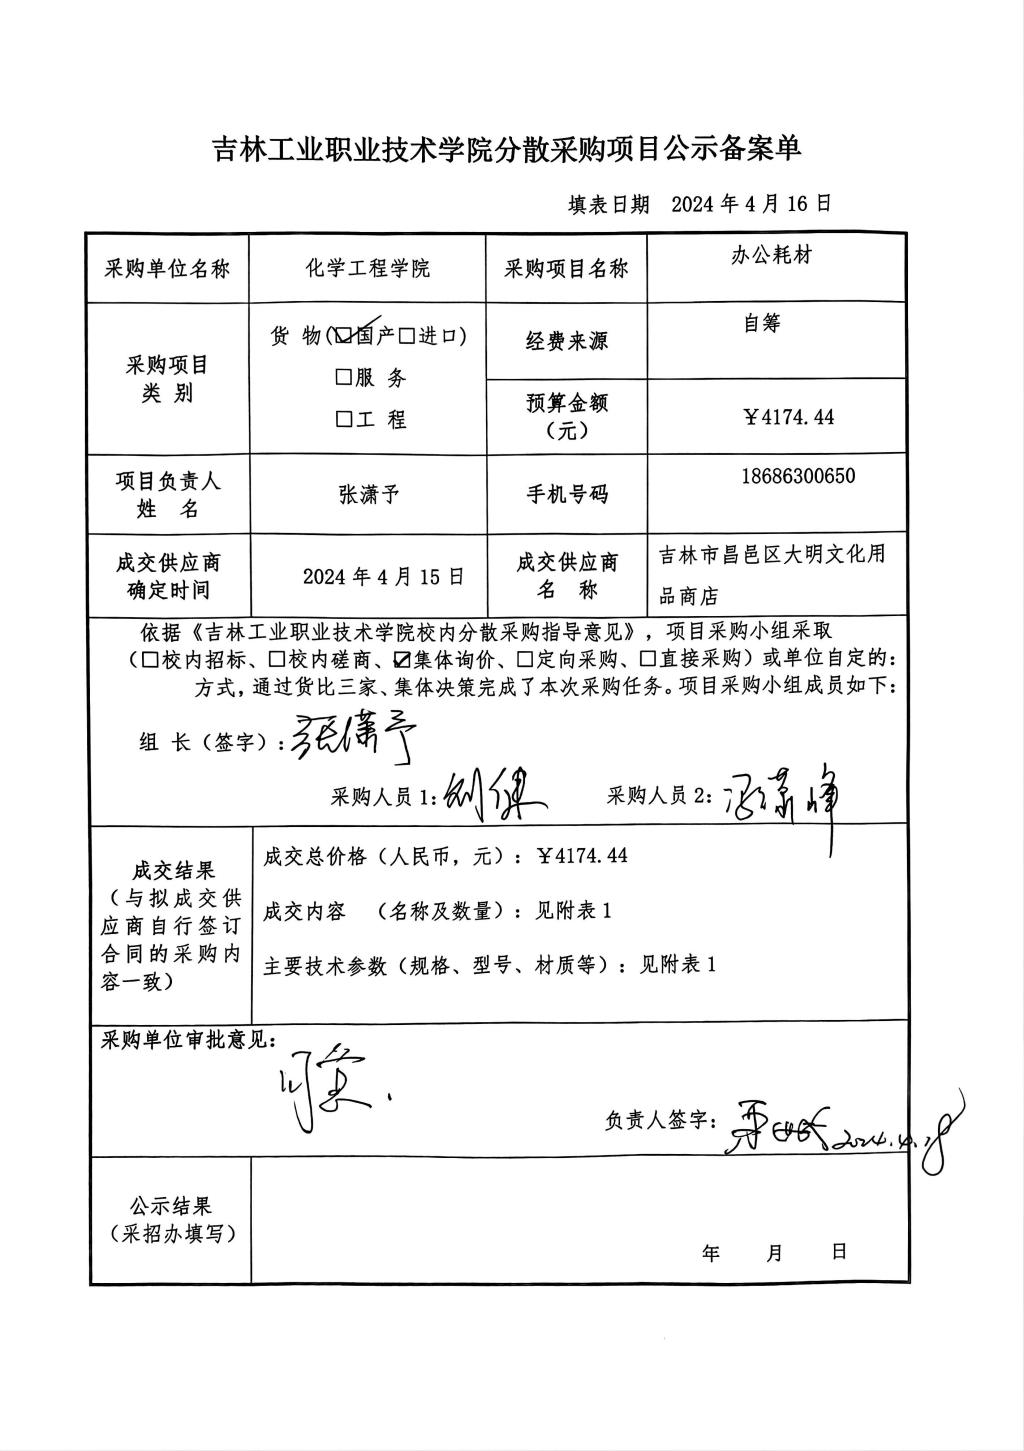 吉林工业职业技术学院分散采购项目公示备案单
填表日期 2024年4月16日
采购单位名称 化学工程学院 采购项目名称 办公耗材
采购项目
类 别
货 物(☑国产□进口)
□服 务
□工 程
经费来源 自筹
预算金额
（元）
￥4174.44
项目负责人
姓 名
张潇予
手机号码 18686300650
成交供应商
确定时间
2024年4月15日
成交供应商
名 称
吉林市昌邑区大明文化用
品商店
依据《吉林工业职业技术学院校内分散采购指导意见》，项目采购小组采取
（□校内招标、□校内磋商、☑集体询价、□定向采购、□直接采购）或单位自定的：
方式，通过货比三家、集体决策完成了本次采购任务。项目采购小组成员如下：
组 长（签字）：张潇予
采购人员1：刘健 采购人员2：冯潇峰
成交结果
（与拟成交供
应商自行签订
合同的采购内
容一致）
成交总价格（人民币，元）：￥4174.44
成交内容 （名称及数量）：见附表1
主要技术参数（规格、型号、材质等）：见附表1
采购单位审批意见：
同意.
负责人签字： 2024.4.18
公示结果
（采招办填写）
年 月 日